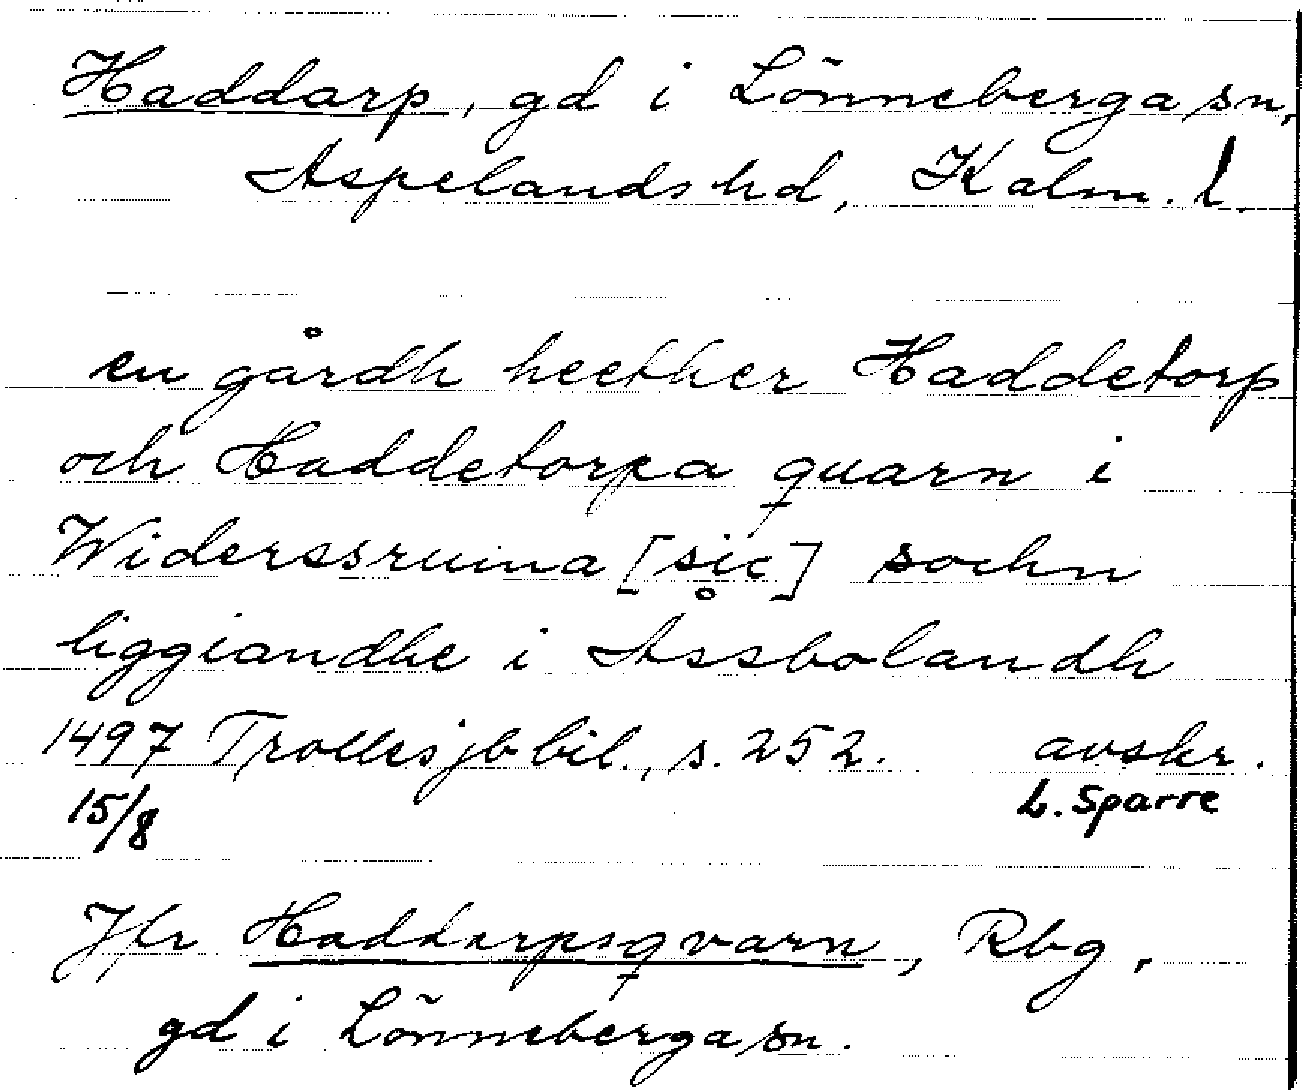 Haddarp, gd i Lönneberga sn,
Aspelands hd, Kalm. l.
en gårdh heether Haddetorp
och Haddetorpa quarn i
Widerssruma [sic] sochn
liggiandhe i Assbolandh
1497 Trolles jb bil., s. 252. avskr.
15/8 L. Sparre
Jfr Haddarpsqvarn, Rbg,
gd i Lönneberga sn.